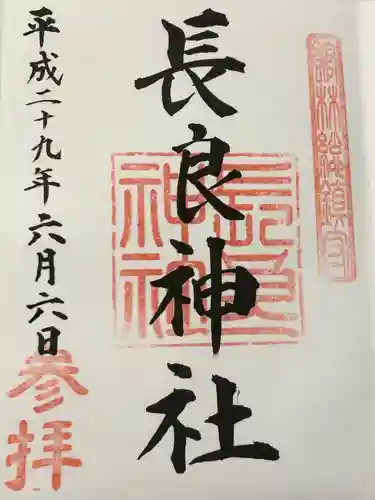 長良神社
平成二十九年六月六日
参拝